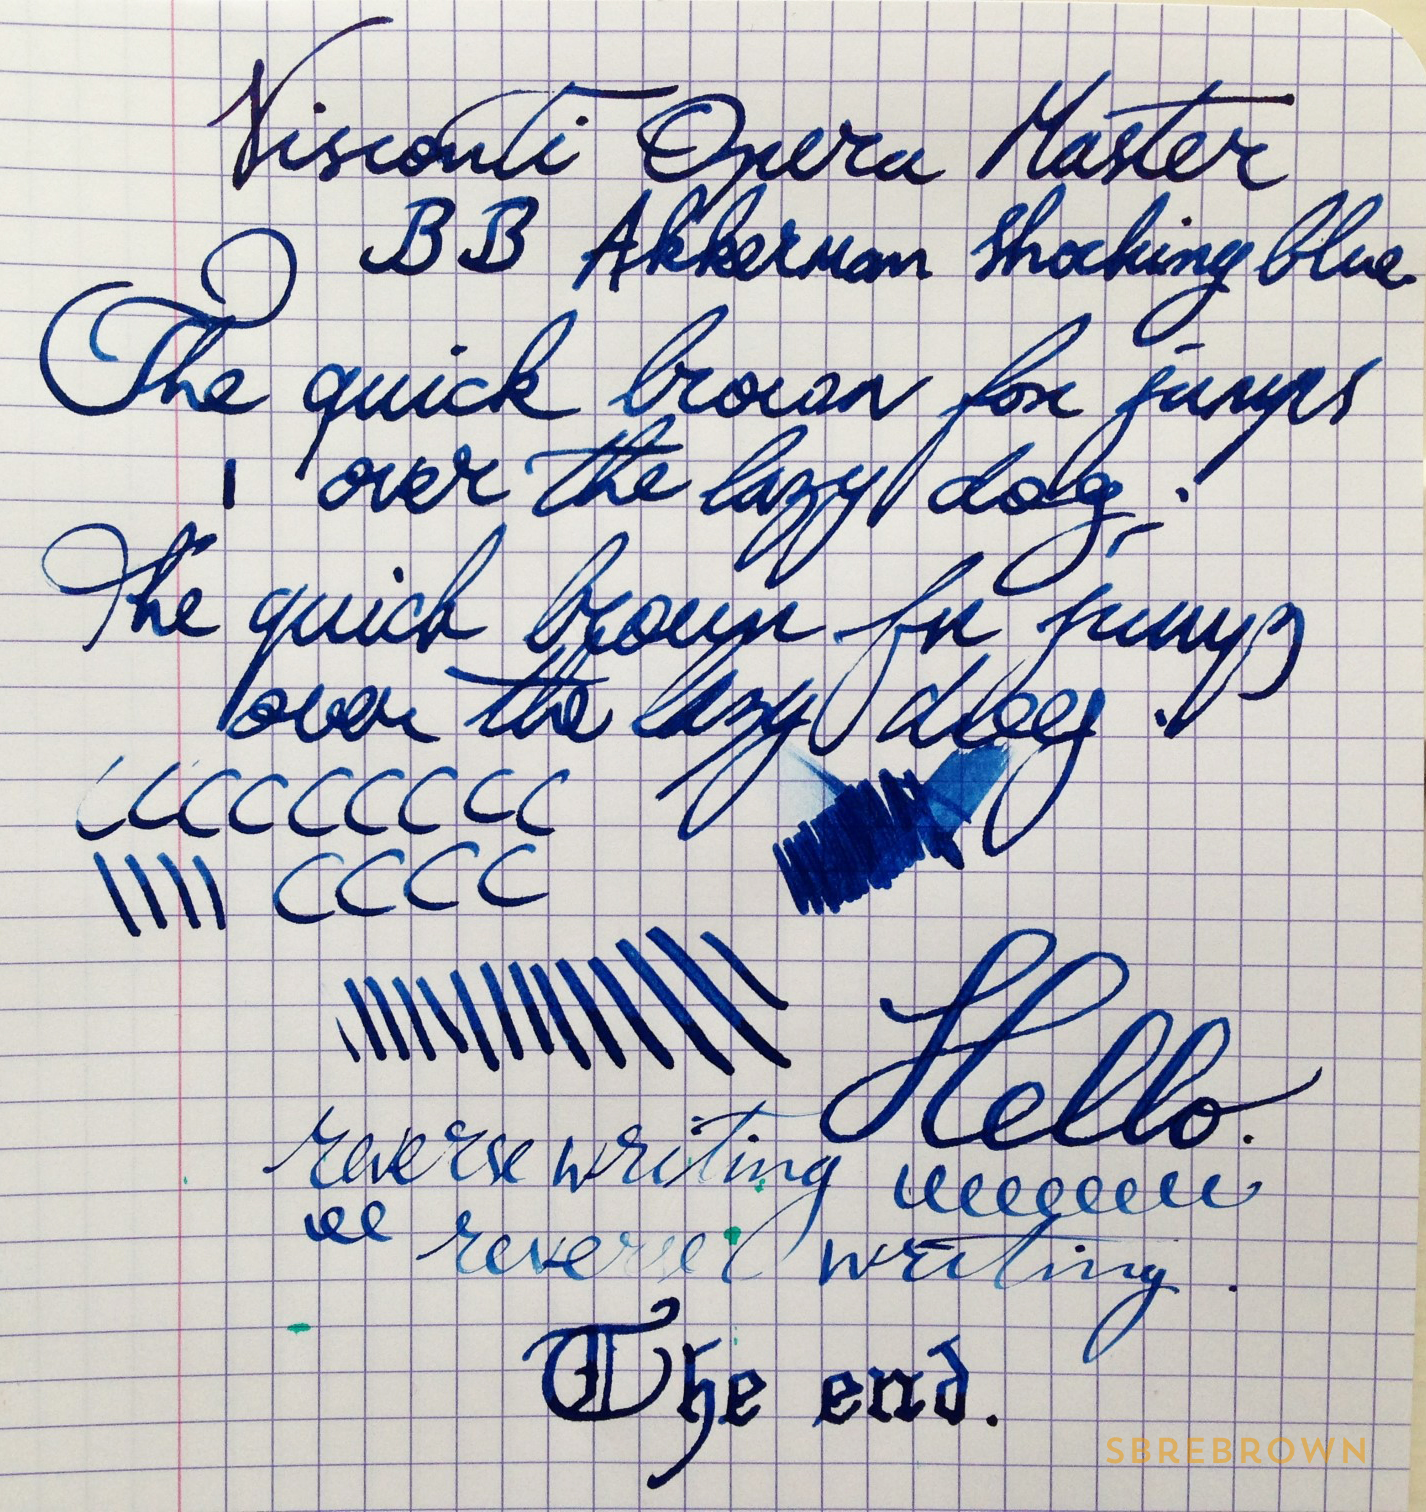 Visconti Opera Master
BB Akkerman Shocking blue
The quick brown fox jumps
over the lazy dog.
The quick brown fox jumps
over the lazy dog.
ccccccccccc
cccc
Hello.
reverse writing eeeeeeee
ee reverse writing.
The end.
SBREBROWN